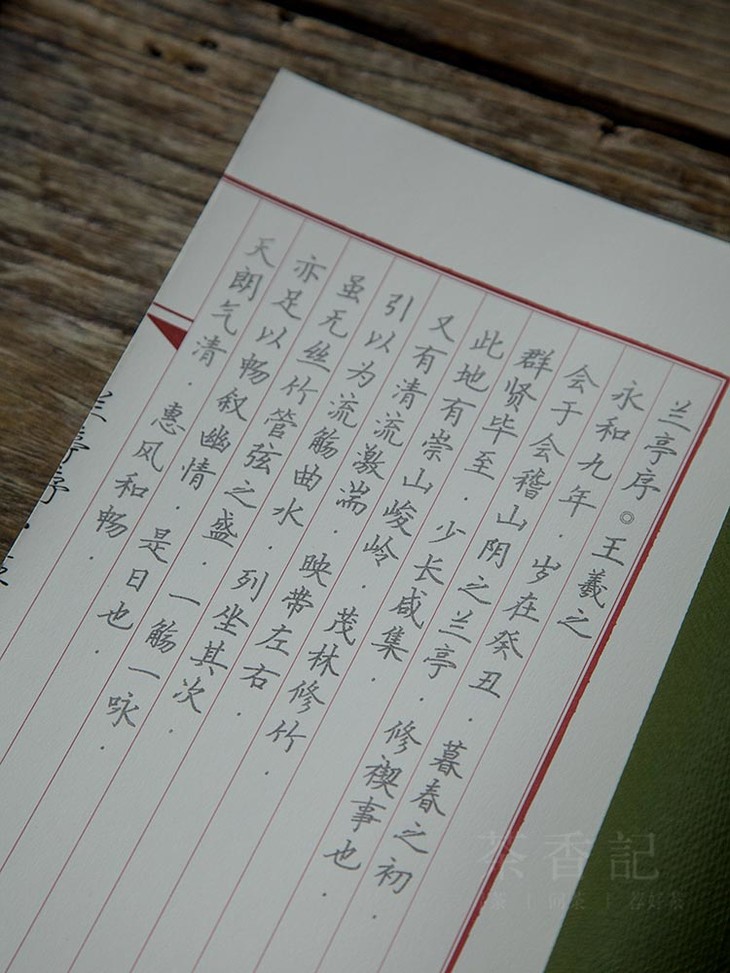 兰亭序◎王羲之
永和九年·岁在癸丑·暮春之初·
会于会稽山阴之兰亭·修禊事也·
群贤毕至·少长咸集·
此地有崇山峻岭·茂林修竹·
又有清流激湍·映带左右·
引以为流觞曲水·列坐其次·
虽无丝竹管弦之盛·一觞一咏·
亦足以畅叙幽情·是日也·
天朗气清·惠风和畅·
兰亭序·
茶香記